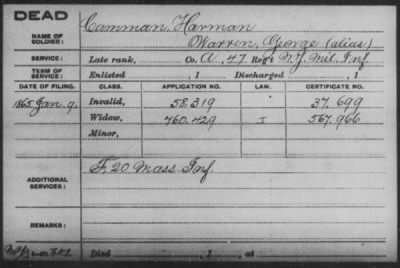 DEAD
Camman Harman
NAME OF SOLDIER:
Warren, George (alias)
SERVICE: Late rank, Co. A, 47 Reg't N.Y. Mil. Inf.
TERM OF SERVICE: Enlisted , 1 Discharged , 1
DATE OF FILING. CLASS. APPLICATION NO. LAW. CERTIFICATE NO.
1865 Jan. 9. Invalid, 58.319 37.699
Widow, 760.429 I 567.966
Minor,
F. 20 Mass. Inf.
ADDITIONAL SERVICES:
REMARKS:
Died , 1 , at